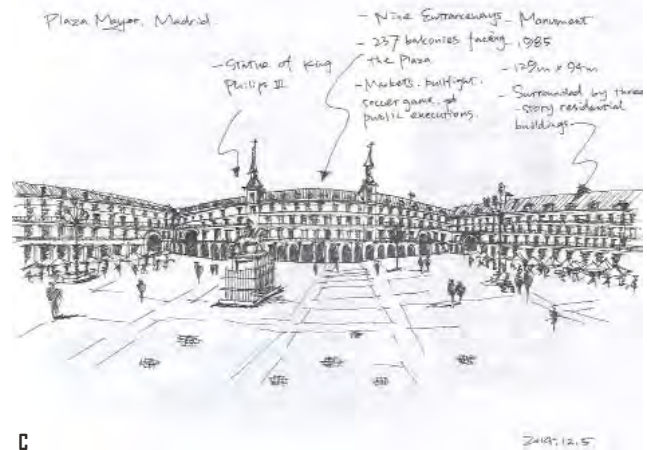 Plaza Mayor, Madrid
- Statue of King
Philip III
- Nine Entranceways
- 237 balconies facing
the Plaza
- Markets, bullfight,
soccer game,
public executions.
- Monument
1985
- 129m x 94m
- Surrounded by three
-story residential
buildings.
C
2019.12.5